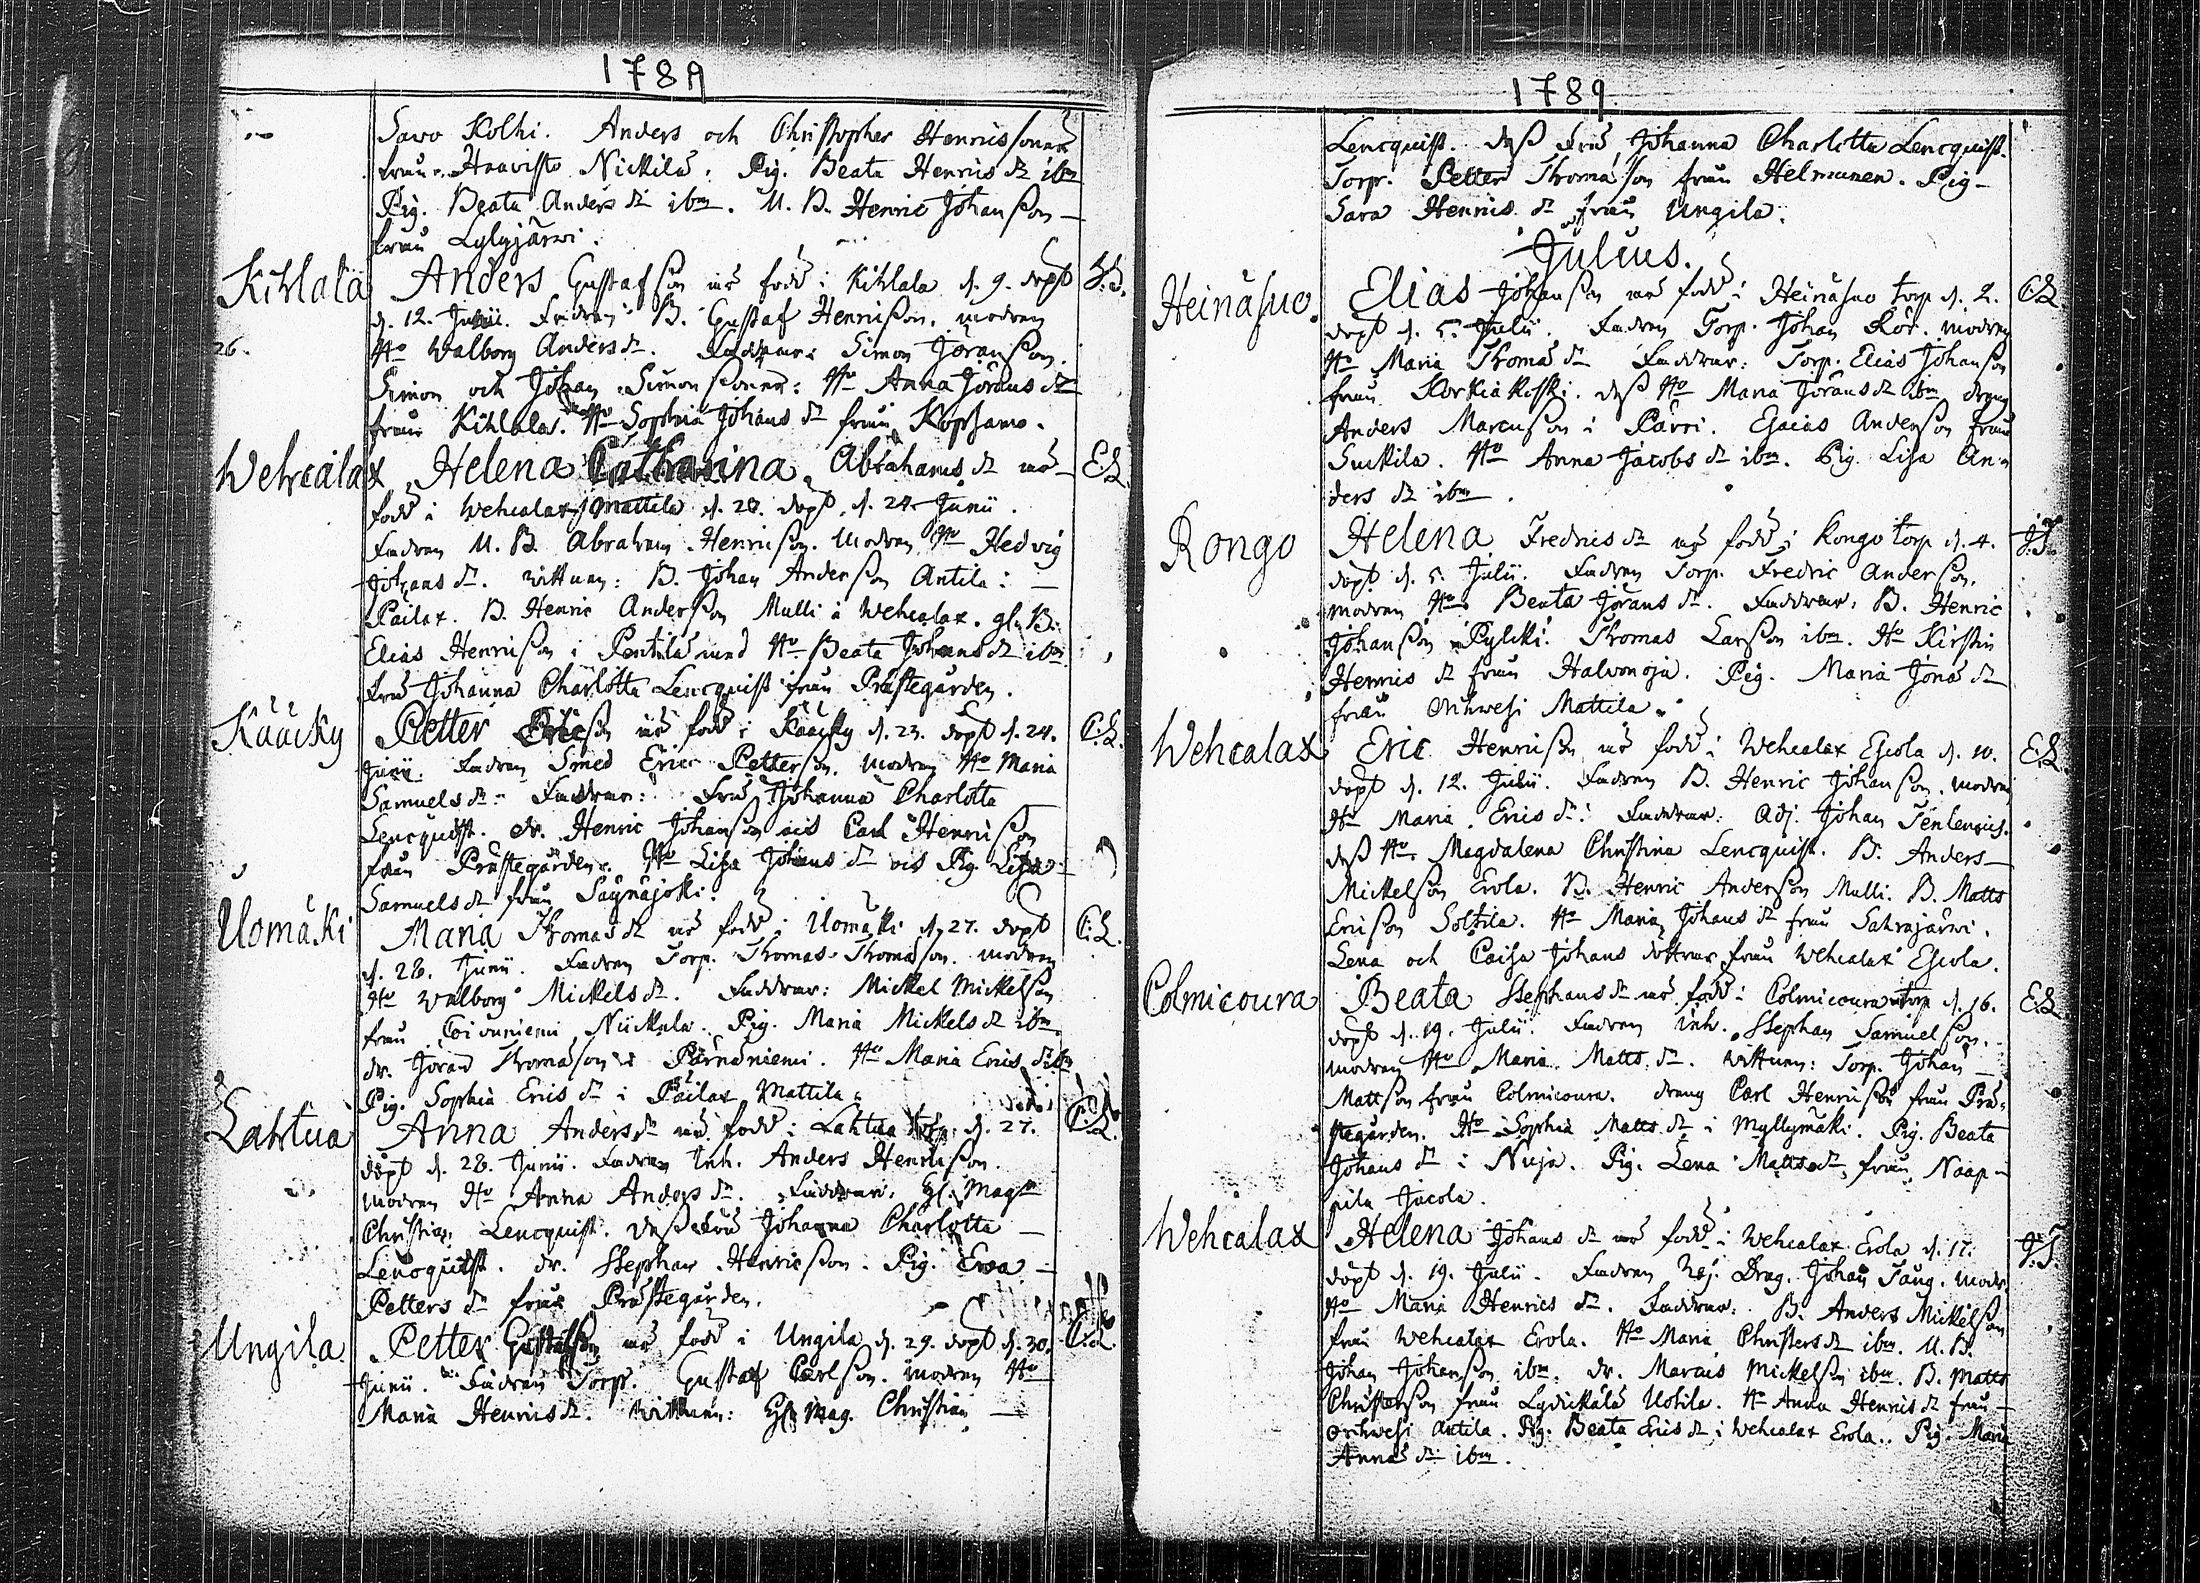 1789
Savo Kolhi. Anders och Christopher Henrics sonar
från Haavisto Nickilä. Pig. Beata Henrics dr ibm
Pig. Beata Anders dr ibm. U. B. Henric Johansson
från Lylyjärvi.
Kihlala Anders Gustafson är född i Kihlala d. 9. döpt
d. 12. Junii. Fadren B. Gustaf Henricson. modren
26. Ho Walborg Anders dr. Faddrar: Simon Joranson.
Simon och Johan Simonsöner. Ho Anna Jorans dr
från Kihlala. Ho Sophia Johans dr från Kopsamo.
Wehcalax Helena Catharina Abrahams dr är E.L.
född i Wehcalax Mattila d. 20. döpt d. 24 Junii.
Fadren U. B. Abraham Henricson. Modren Ho Hedvig
Johans dr. Wittnen: B. Johan Anderson Antila i
Pailax. B. Henric Anderson Mulli i Wehcalax. gl. B.
Elias Henricson i Pentilä med Ho Beata Johans dr ibm.
Fru Johanna Charlotta Lencquist från Prästegården.
Kääcky Petter Ericson är född i Kääcky d. 23. döpt d. 24. C.L.
Junii. Fadren Smed Eric Petterson. modren Ho Maria
Samuels dr. Faddrar: Fru Johanna Charlotta
Lencquist. dr. Henric Johanson och Carl Henricson
från Prästegården. Ho Lisa Johans dr och Pig. Lisa
Samuels dr från Säynäjoki.
Uomäki Maria Thomas dr är född i Uomäki d. 27. döpt C.L.
d. 28. Junii. Fadren Torp. Thomas Thomason. modren
Ho Walborg Mickels dr. Faddrar: Mickel Mickelson
från Koivuniemi Nickula. Pig. Maria Mickels dr ibm.
dr. Joran Thomason i Pärnäniemi. Ho Maria Erics dr ibm
Pig. Sophia Erics dr i Pailax Mattila.
Lahtua Anna Anders dr är född i Lahtua torp d. 27. C.L.
döpt d. 28. Junii. Fadren Inh. Anders Henricson.
modren Ho Anna Anders dr. Faddrar: H. Magr
Christian Lencquist. dess Fru Johanna Charlotta
Lencquist. dr. Stephan Henricson. Pig. Ewa
Petters dr från Prästegården.
Ungila Petter Gustafson är född i Ungila d. 29. döpt d. 30. C.L.
Junii. Fadren Torp. Gustaf Carlson. modren Ho
Maria Henrics dr. Wittnen: H. Mag. Christian
1789
Lencquist. dess Fru Johanna Charlotta Lencquist.
Torp. Petter Thomason från Helmunen. Pig
Sara Henrics dr från Ungila.
Julius.
Heinäsuo. Elias Johanson är född i Heinäsuo torp d. 2. C.L.
döpt d. 5. Julii. Fadren Torp. Johan Rör. modren
Ho Maria Thomas dr Faddrar: Torp. Elias Johanson
från Korkiakoski. dess Ho Maria Jorans dr ibm. dreng
Anders Marcuson i Parri. Esaias Anderson från
Suckila. Ho Anna Jacobs dr ibm. Pig. Lisa An-
ders dr ibm.
Rongo Helena Fredrics dr är född i Rongo torp d. 4. J.T.
döpt d. 5 Julii. Fadren Torp. Fredric Anderson.
modren Ho Beata Jorans dr. Faddrar: B. Henric
Johanson Pylcki. Thomas Larson ibm. Ho Kirstin
Henrics dr från Halvonoja. Pig. Maria Jonas dr
från Orihwesi Mattila.
Wehcalax Eric Henricson är född i Wehcalax Escola d. 10. E.L.
döpt d. 12. Julii. Fadren B. Henric Johanson. modren
Ho Maria Erics dr. Faddrar: Adj. Johan Tenlenius.
dess Ho Magdalena Christina Lencquist. B. Anders
Mickelson Erola. B. Henric Anderson Mulli. B. Matts
Ericson Soltila. Ho Maria Johans dr från Sahrajärvi.
Lena och Caisa Johans döttrar från Wehcalax Escola.
Colmicoura Beata Stephans dr är född i Colmicoura torp d. 16. E.L.
döpt d. 19. Julii. Fadren Inh. Stephan Samuelson.
modren Ho Maria Matts dr. Wittnen: Torp. Johan
Mattson från Colmicoura. dreng Carl Henricson från Prä-
stegården. Ho Sophia Matts dr i Myllymäki. Pig. Beata
Johans dr i Nuja. Pig. Lena Matts dr från Naap-
pila Jacola.
Wehcalax Helena Johans dr är född i Wehcalax Erola d. 17. J.T.
döpt d. 19. Julii. Fadren Drag. Johan Tång. modr.
Ho Maria Henrics dr. Faddrar: B. Anders Mickelson
från Wehcalax Erola. Ho Maria Christers dr ibm. U. B.
Johan Johanson ibm. dr. Marcus Mickelson ibm. B. Matts
Christerson från Lydickälä Uotila. Ho Anna Henrics dr från
Orihwesi Antila. Pig. Beata Erics dr i Wehcalax Erola. Pig. Maria
Annas dr ibm.